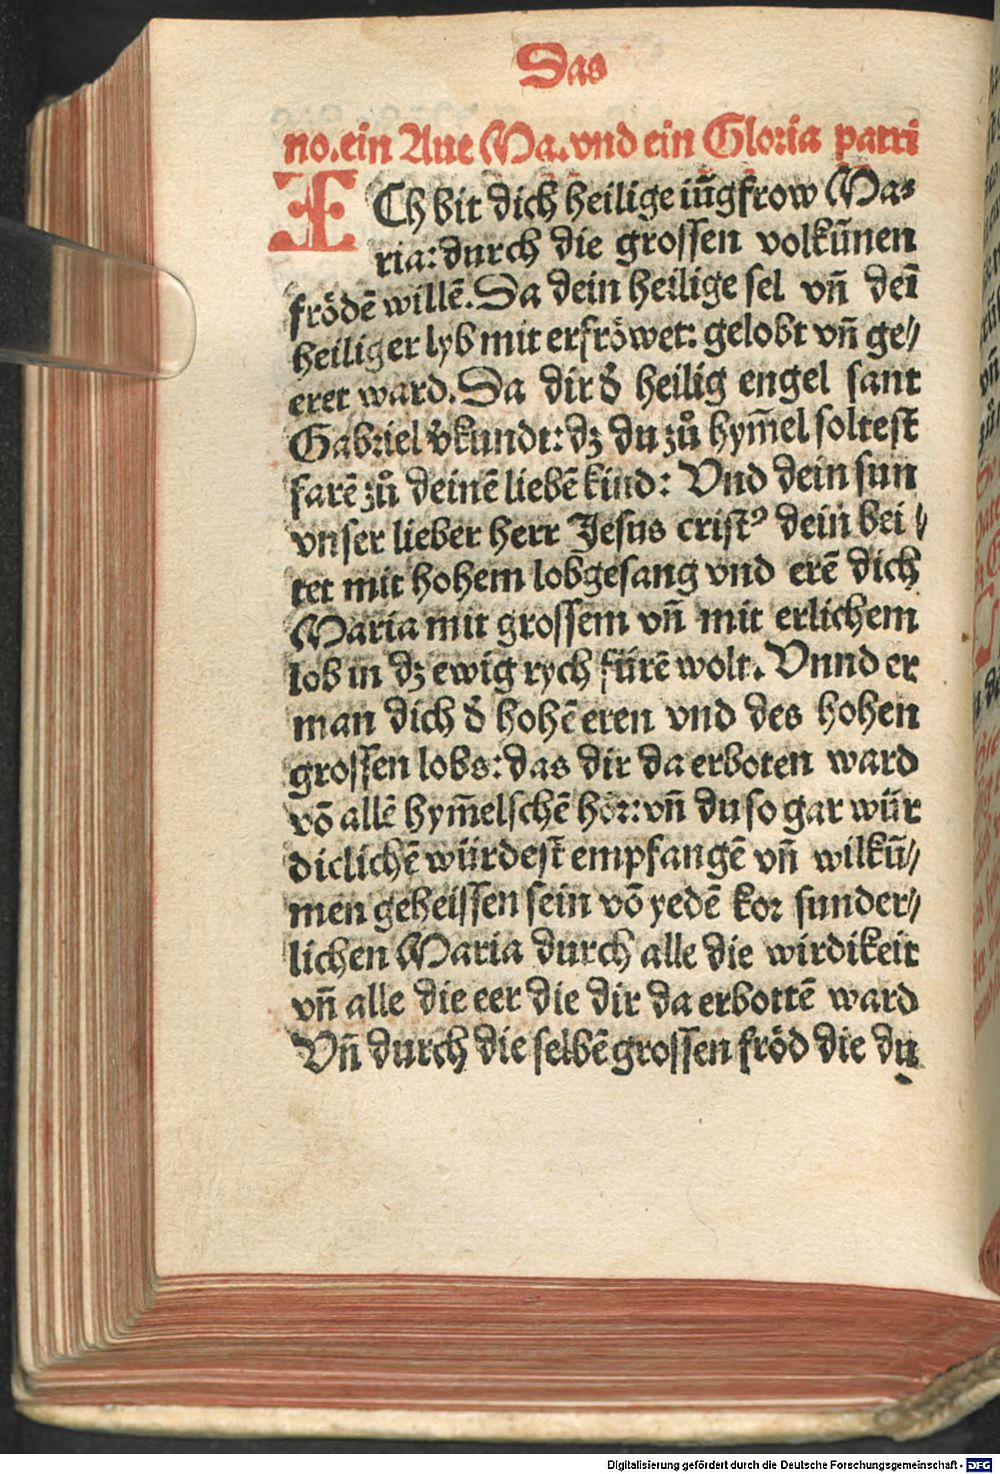 Das
no. ein Aue Ma. vnd ein Gloria patri
ICh bit dich heilige iūgfrow Ma⸗
ria: durch die grossen volkūnen
frödē willē. Da dein heilige sel vn̄ deī
heiliger lyb mit erfröwet: gelobt vn̄ ge⸗
eret ward. Da dir d̓ heilig engel sant
Gabriel v̓kundt: dz du zů hym̄el soltest
farē zů deinē liebē kind: Vnd dein sun
vnser lieber herr Jesus crist⁹ dein bei⸗
tet mit hohem lobgesang vnd erē dich
Maria mit grossem vn̄ mit erlichem
lob in dz ewig rych fürē wolt. Vnnd er
man dich d̓ hohē eren vnd des hohen
grossen lobs: das dir da erboten ward
vō allē hym̄elschē hör: vn̄ du so gar wür
diclichē würdest empfangē vn̄ wilkū⸗
men geheissen sein vō yedē kor sunder⸗
lichen Maria durch alle die wirdikeit
vn̄ alle die eer die dir da erbottē ward
Vn̄ durch die selbē grossen fröd die du
Digitalisierung gefördert durch die Deutsche Forschungsgemeinschaft - DFG